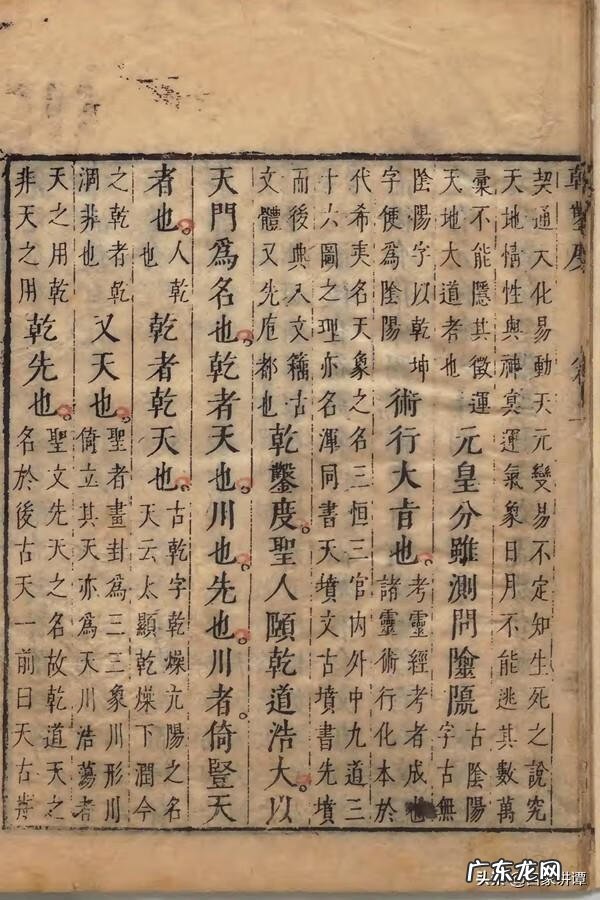 乾鑿度 卷一
契通天化易動天元變易不定知生死之說究
天地情性與神冥運氣象日月不能逃其數萬
彙不能隱其徵運
天地大道者也
元皇分雖測問隂
古陰陽
字古無
陰陽字以乾坤
字便爲陰陽
術行大旨也。
考靈經考者成也
諸靈術行化本於
代希夷名天象之名三恒三官内外中九道三
十六圖之理亦名渾同書天墳文古墳書先墳
而後典入文籍古
文體又先庖都也
乾鑿度。聖人頤乾道浩大。以
天門爲名也。乾者天也。川也。先也。川者。倚豎天
者也。
人乾
也
乾者乾天也。
古乾字乾燥亢陽之名
天云太顯乾燥下潤今
之乾者乾
涸非也
又天也。
聖者畫卦爲三三象川形川
倚立其天亦爲天川浩蕩者
天之用乾
非天之用
乾先也。
聖文先天之名故乾道天之
名於後古天一前曰天古
广东龙网